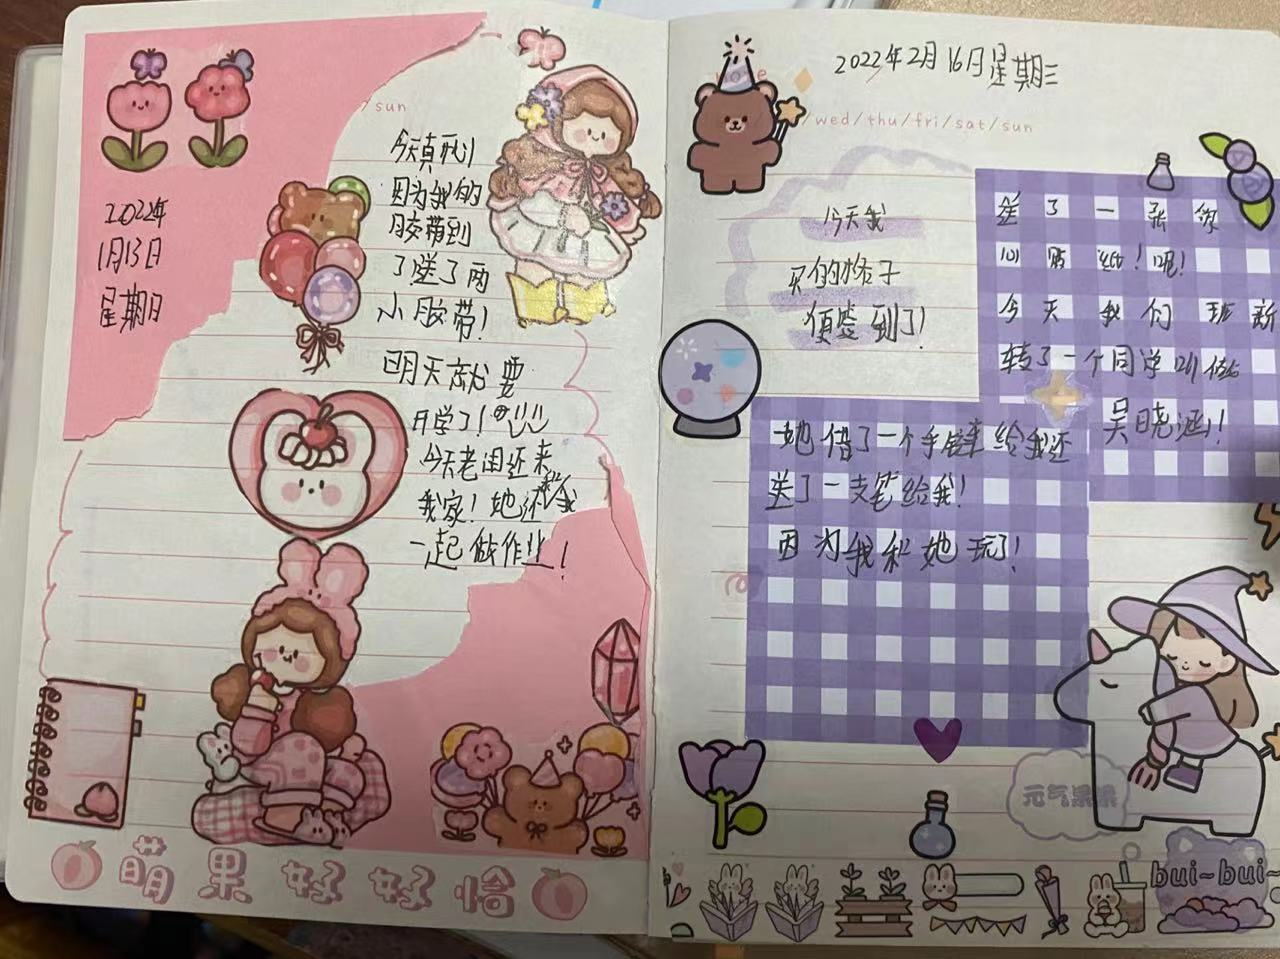 sun
2022年
1月13日
星期日
今天真开心!
因为我的
胶带到
了送了两
小胶带!
明天就要
开学了!
今天老闺还来
我家!她还和我
一起做作业!
萌果好好恰
2022年2月16日星期三
/wed/thu/fri/sat/sun
今天我
买的格子
便签到了!
送了一张你
心贴纸!呢!
今天我们班新
转了一个同学叫
吴晓涵!
她借了一个手链给我还
送了一支笔给我!
因为我和她玩了!
元气果果
bui~bui~